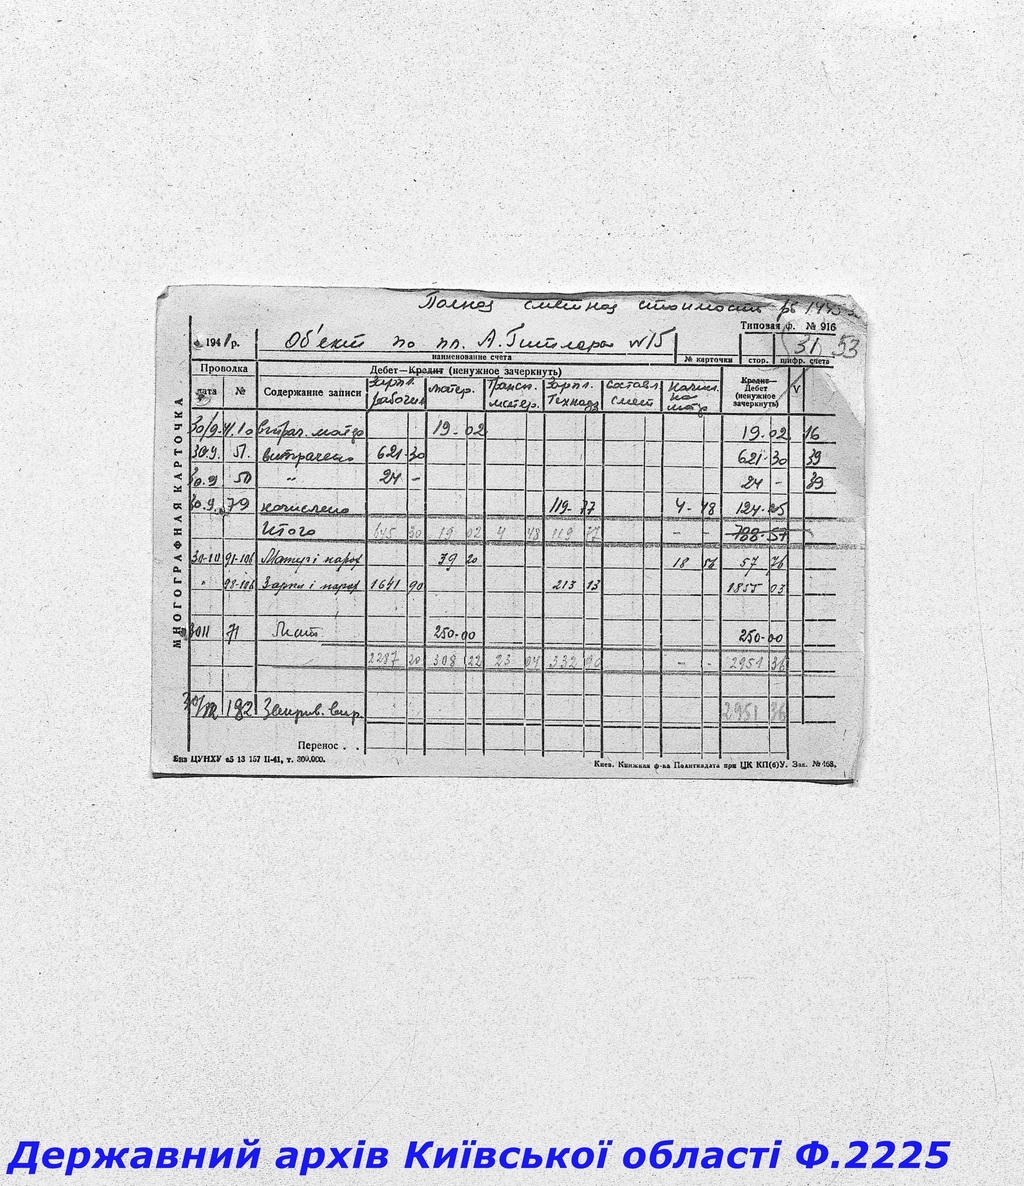 Полная сметная стоимость
Типовая ф. № 916
1941 р. Об'ект по пл. А. Гитлера №15 31 53
наименование счета № карточки стор. шифр. счета
Проводка Дебет—Кредит (ненужное зачеркнуть)
дата № Содержание записи Зарпл. рабочих Матер. Трансп. матер. Зарпл. Технадз Составл смет Начисл. на матер Кредит— Дебет (ненужное зачеркнуть) V
30/9 19-02 19-02 16
30.9. 51. витрачено 621-30 621-30 39
30.9 51 " 24 - 24 - 39
30.9. 79 начислено 119-77 4-48 124-25
Итого 645 30 19 02 4 48 119 77 - - 788-57
30-10 91-106 39 20 18 56 57 76
" 98-106 1641 90 213 13 1855 03
3011 71 250-00 250-00
2287 20 308 22 23 04 332 90 - - 2951 36
182 2951 36
Перенос . .
МНОГОГРАФНАЯ КАРТОЧКА
ЦУНХУ 13 157 II-41, т. 300.000.
Киев. Книжная ф-ка Политиздата при ЦК КП(б)У. Зак. № 468.
Державний архів Київської області Ф.2225